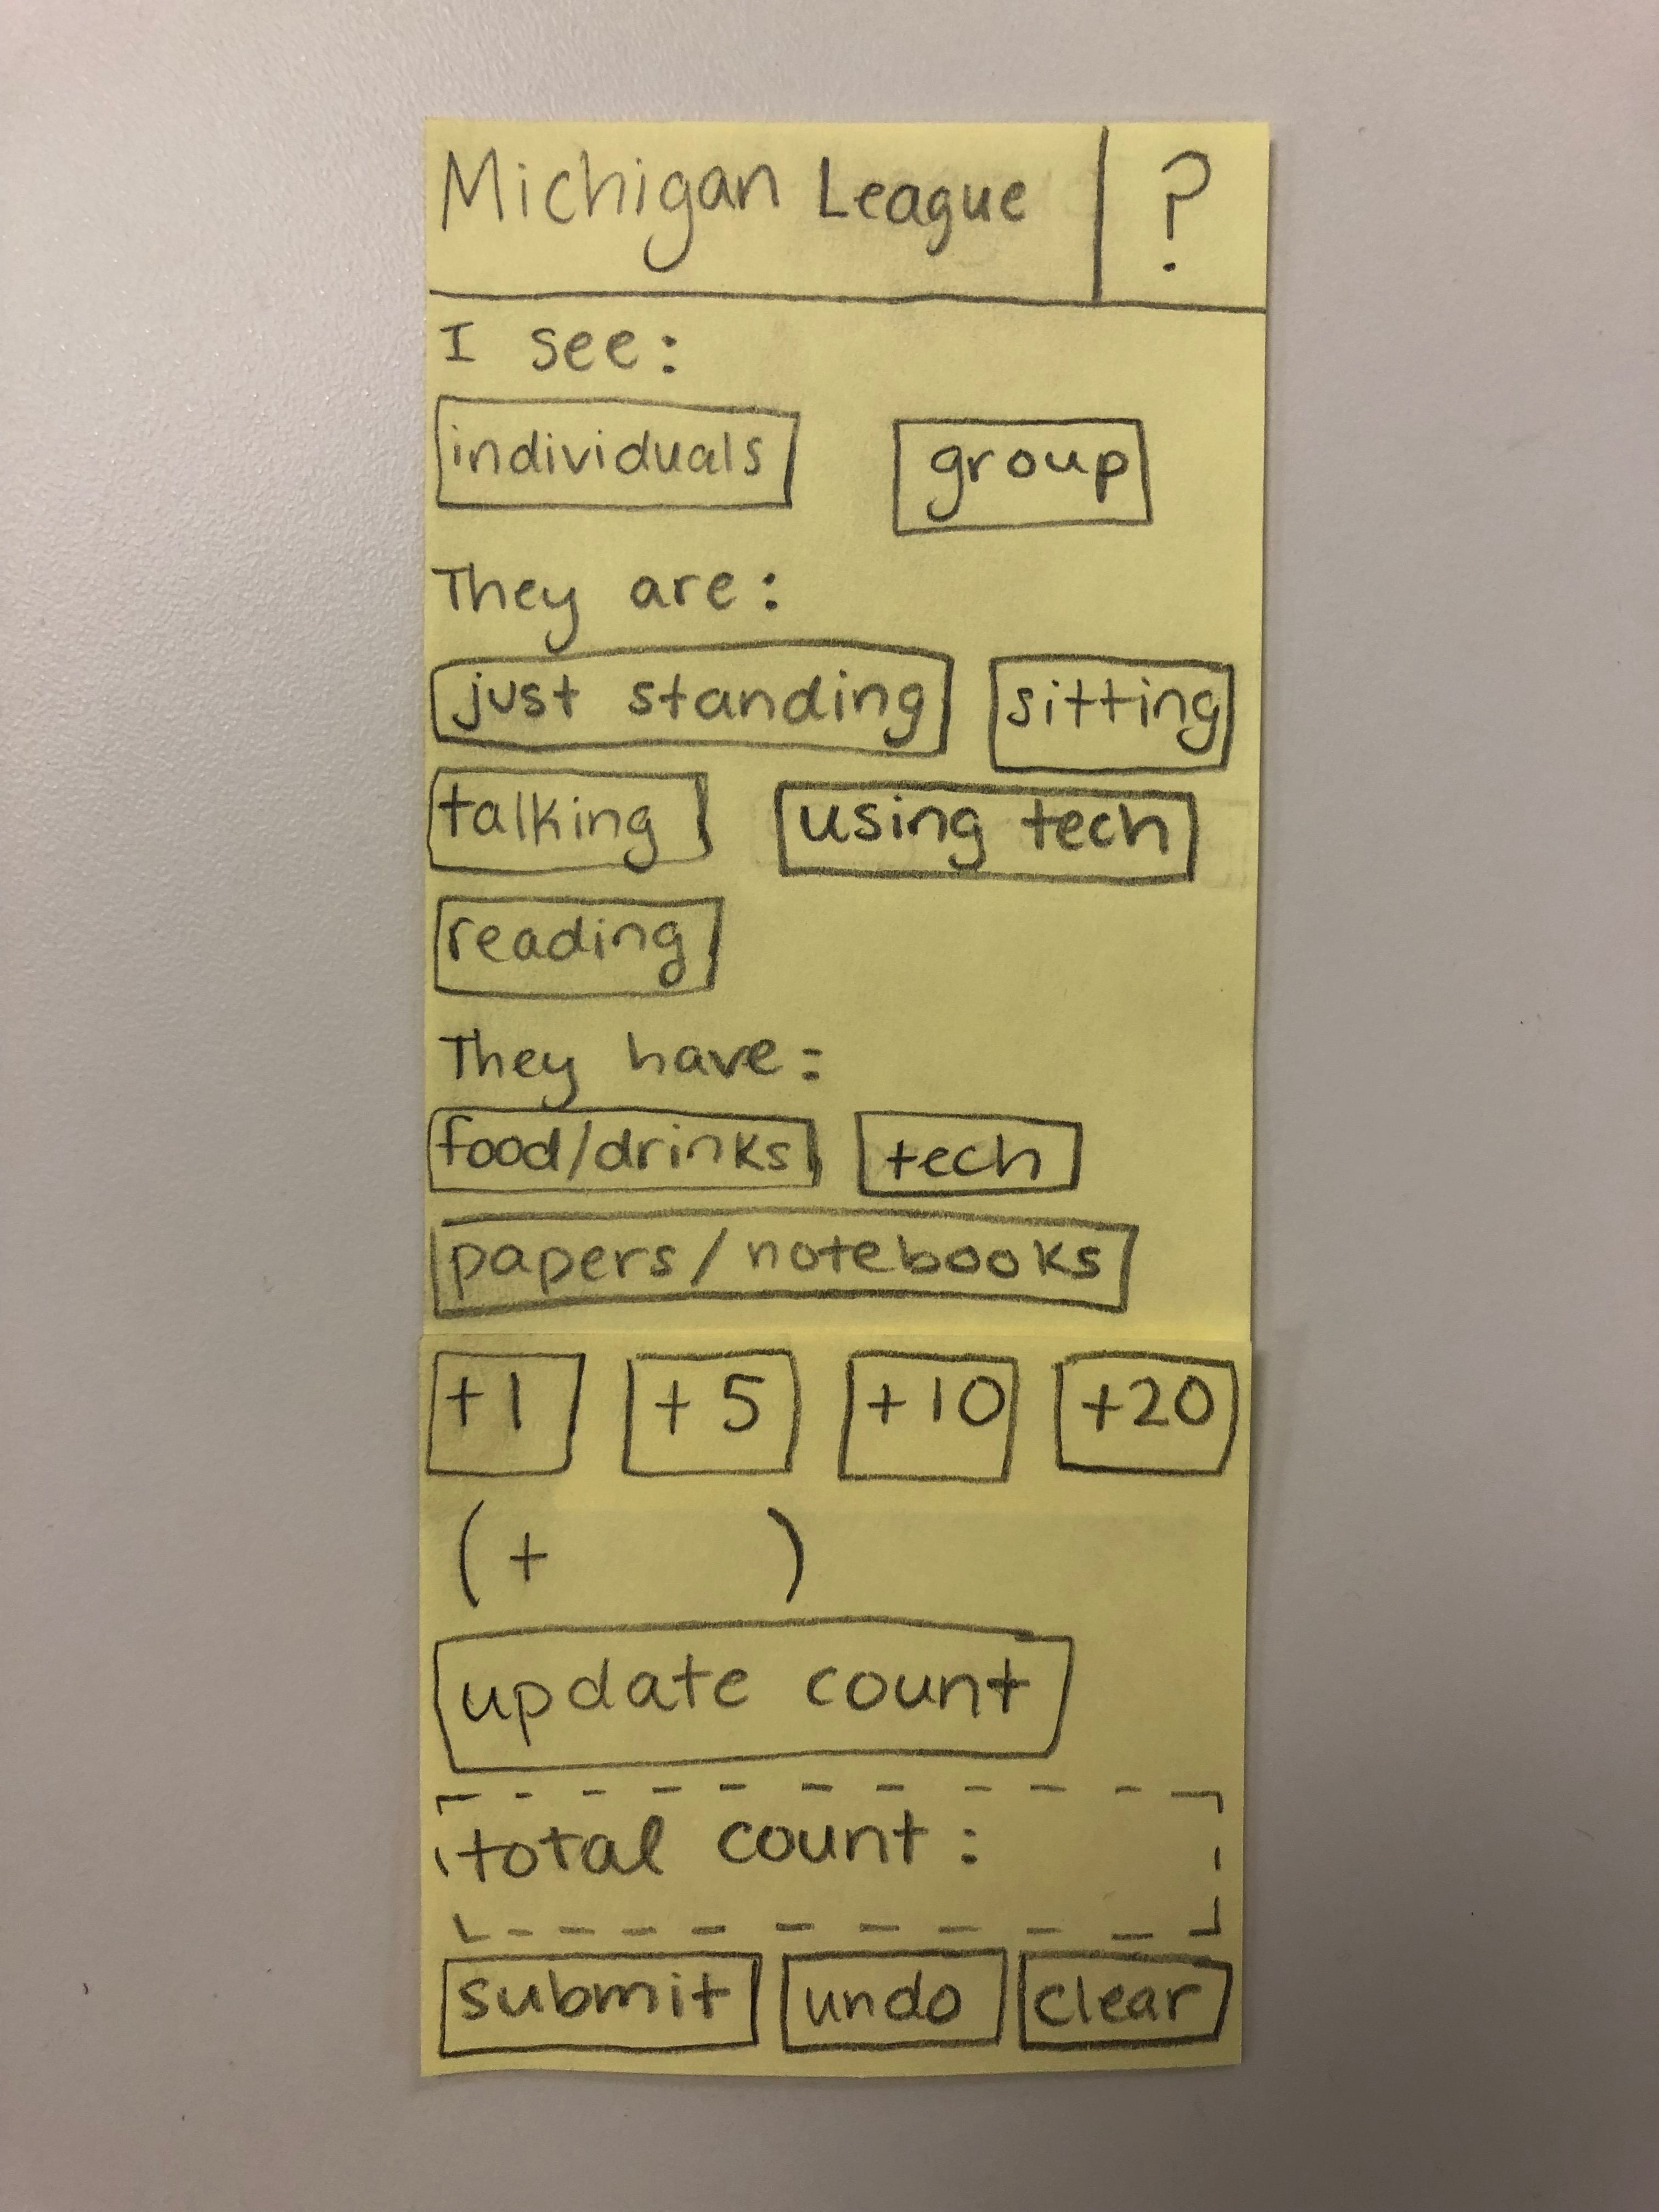 Michigan League ?
I see:
individuals group
They are:
just standing sitting
talking using tech
reading
They have:
food/drinks tech
papers/notebooks
+1 +5 +10 +20
(+ )
update count
total count:
submit undo clear